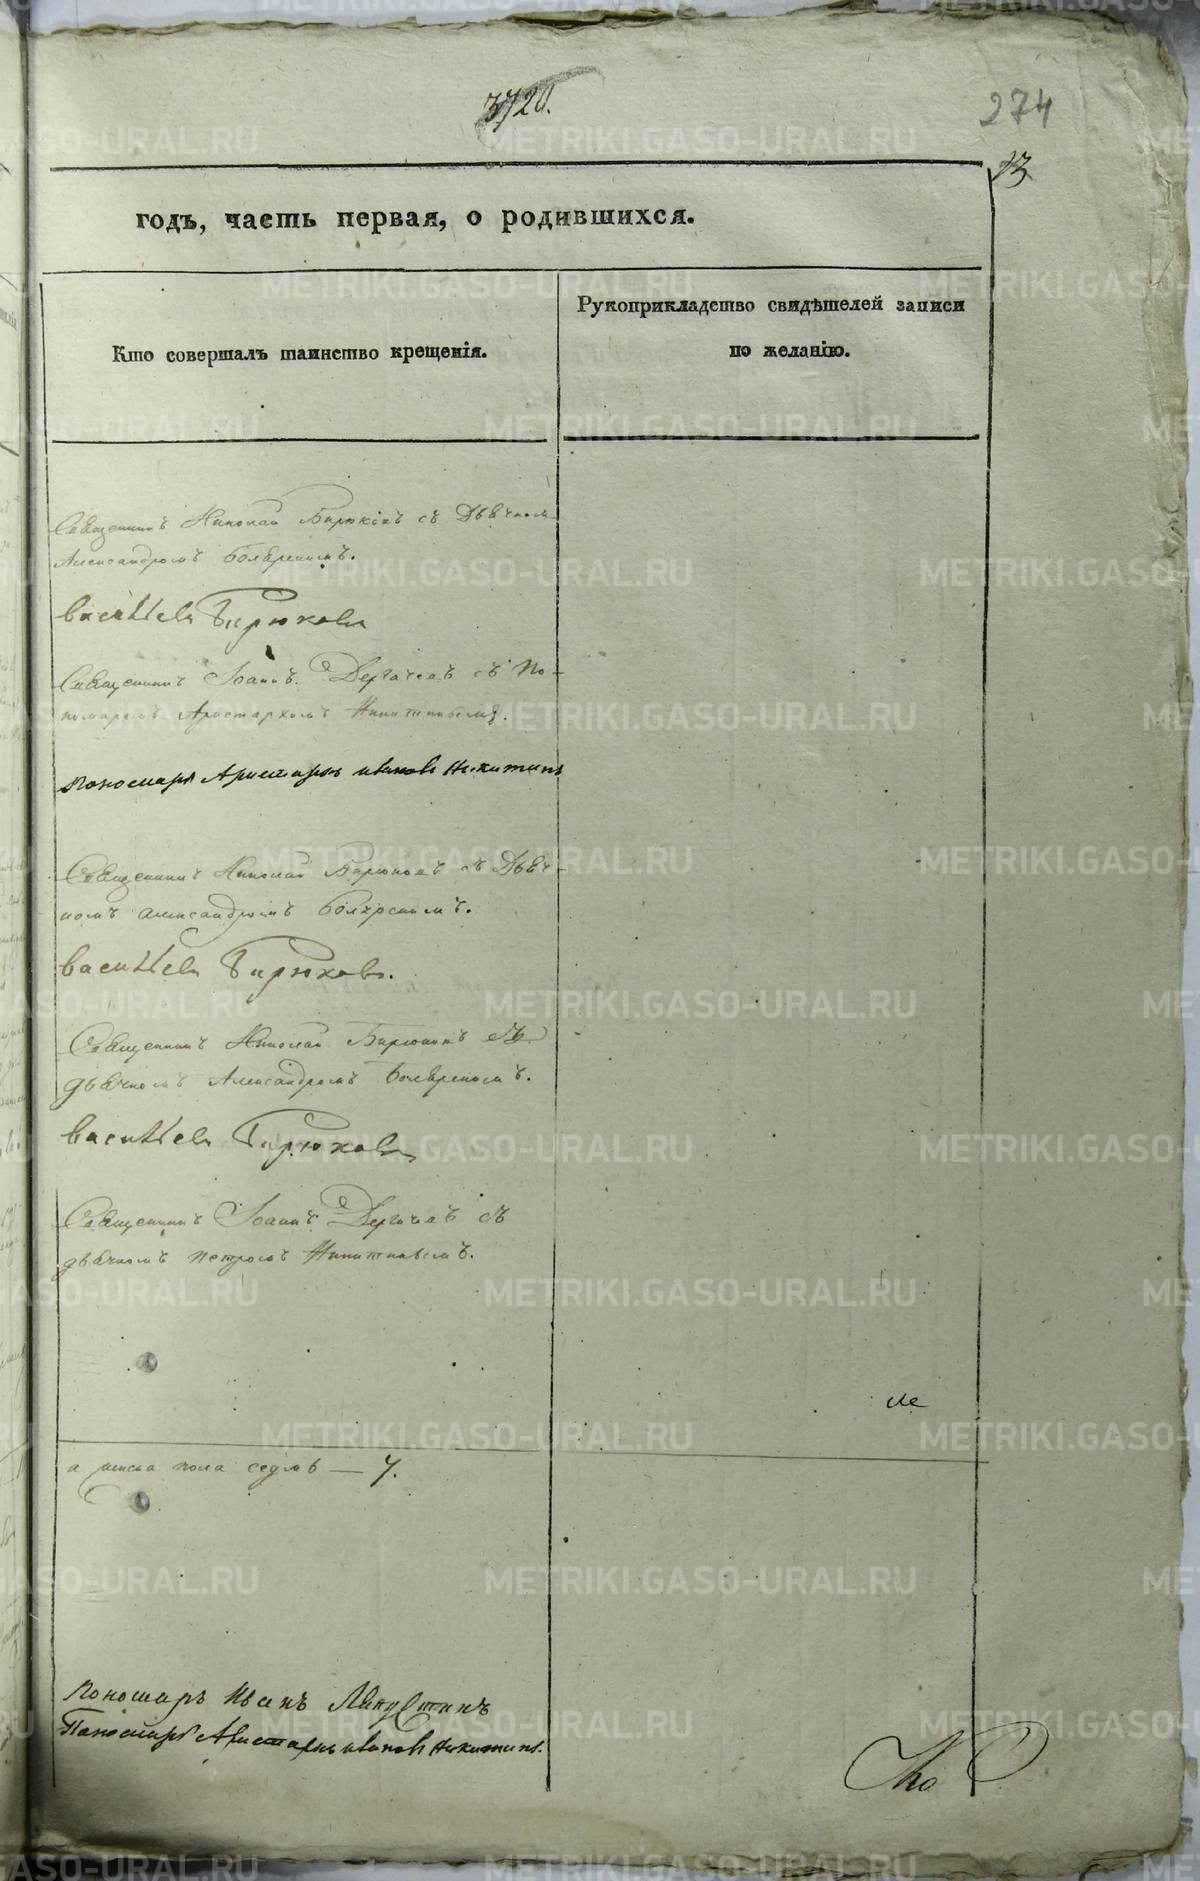 372
274
13
годъ, часть первая, о родившихся.
Кто совершалъ таинство крещенія.
Рукоприкладство свидѣтелей записи
по желанію.
Священникъ Николай Бирюковъ съ Дьячкомъ
Александромъ
Василей Бирюковъ
Священникъ Іоаннъ Дергачевъ съ По-
номаремъ Аристархомъ Никитинымъ.
Пономарь Аристархъ Ивановъ Никитинъ
Священникъ Николай Бирюковъ съ Дьяч-
комъ Александромъ
Василей Бирюковъ.
Священникъ Николай Бирюковъ съ
дьячкомъ Александромъ
Василей Бирюковъ
Священникъ Іоаннъ Дергачевъ съ
дьячкомъ Петромъ Никитинымъ.
а женска пола седмь — 7.
Пономарь Иванъ
Пономарь Аристархъ Ивановъ Никитинъ.
METRIKI.GASO-URAL.RU